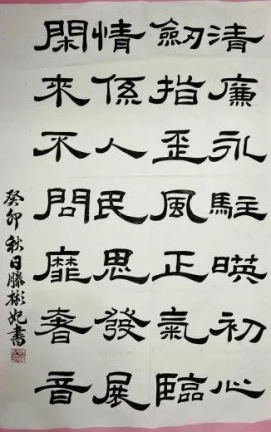 清廉永駐暎初心
劔指歪風正氣臨
情係人民思發展
閑來不問靡奢音
癸卯秋日滕彬妃書